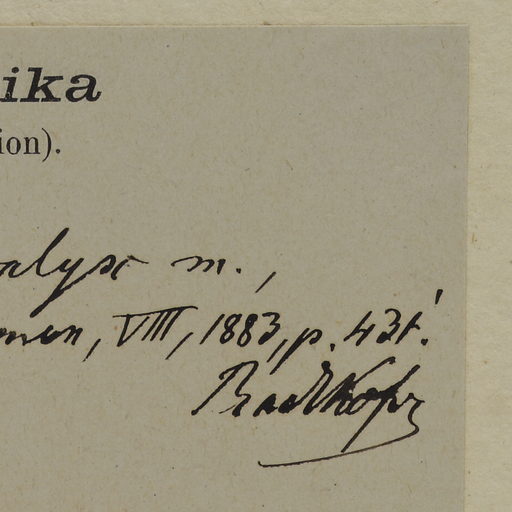 ika
ion).
alyx m.,
men, VIII, 1883, p. 431.
Radlkofer